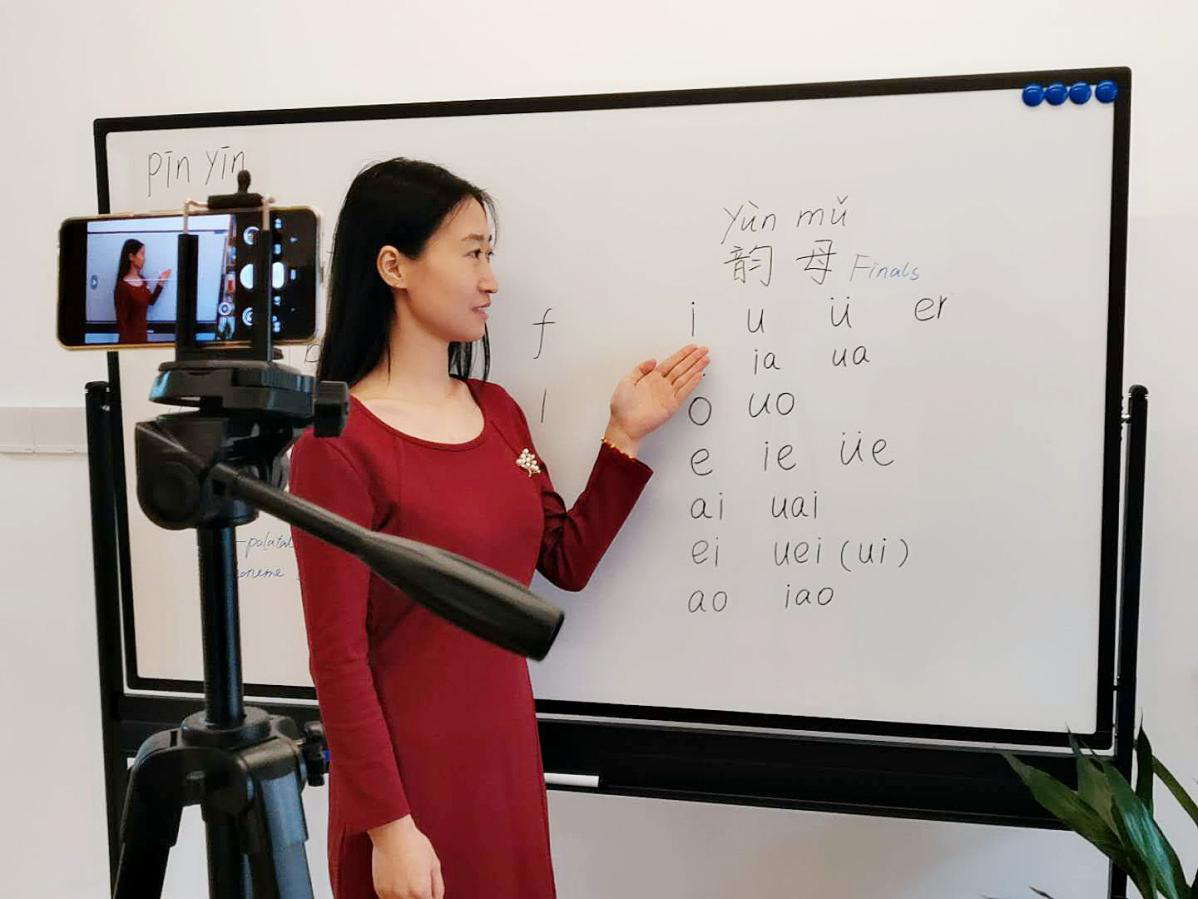 pīn yīn
yùn mǔ
韵 母 Finals
f
i u ü er
ia ua
l
o uo
e ie üe
ai uai
ei uei (ui)
ao iao
-palatal